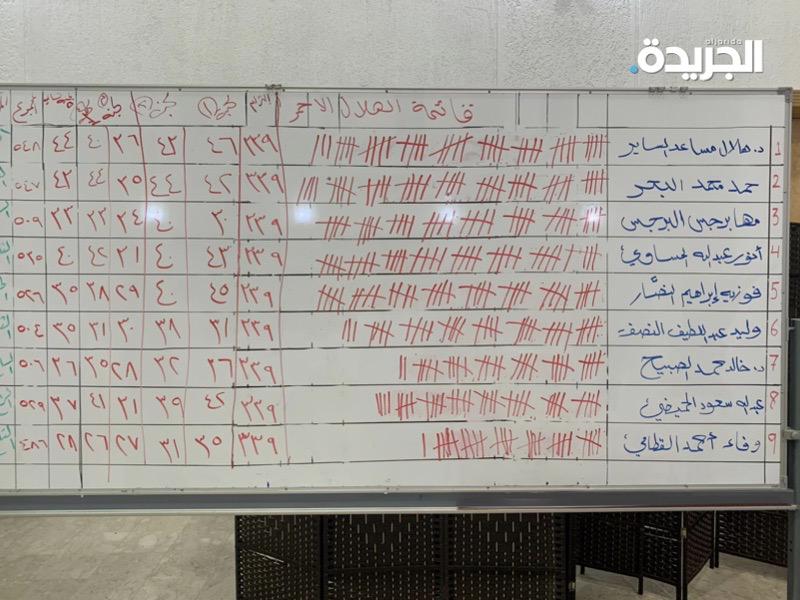 aljarida
الجريدة
قائمة الهلال الاحمر التزام لجنة ① لجنة ② لجنة
1 د. هلال مساعد الساير ٣٣٩ ٤٦ ٤٣ ٢٦ ٤٤ ٥٤٨
2 حمد محمد البحر ٣٣٩ ٤٢ ٤٤ ٢٥ ٤٣ ٥٤٧
3 مها برجس البرجس ٣٣٩ ٣٠ ٤٠ ٢٤ ٢٣ ٣٣ ٥٠٩
4 أنور عبدالله الحساوي ٣٣٩ ٤٣ ٤٠ ٢١ ٤٠ ٥٢٥
5 فوزيه إبراهيم ٣٣٩ ٤٥ ٤٠ ٢٩ ٢٨ ٣٥ ٥٢٦
6 وليد عبداللطيف النصف ٣٣٩ ٣١ ٣٨ ٣٠ ٣١ ٣٥ ٥٠٤
7 د. خالد حمد الصبيح ٣٣٩ ٢٦ ٣٢ ٢٨ ٣٥ ٢٦ ٥٠٦
8 عبدالله سعود الحميضي ٣٣٩ ٤٢ ٣٩ ٢١ ٤١ ٣٧ ٥٢٩
9 وفاء أحمد القطامي ٣٣٩ ٣٥ ٣١ ٢٧ ٢٦ ٢٨ ٤٨٦